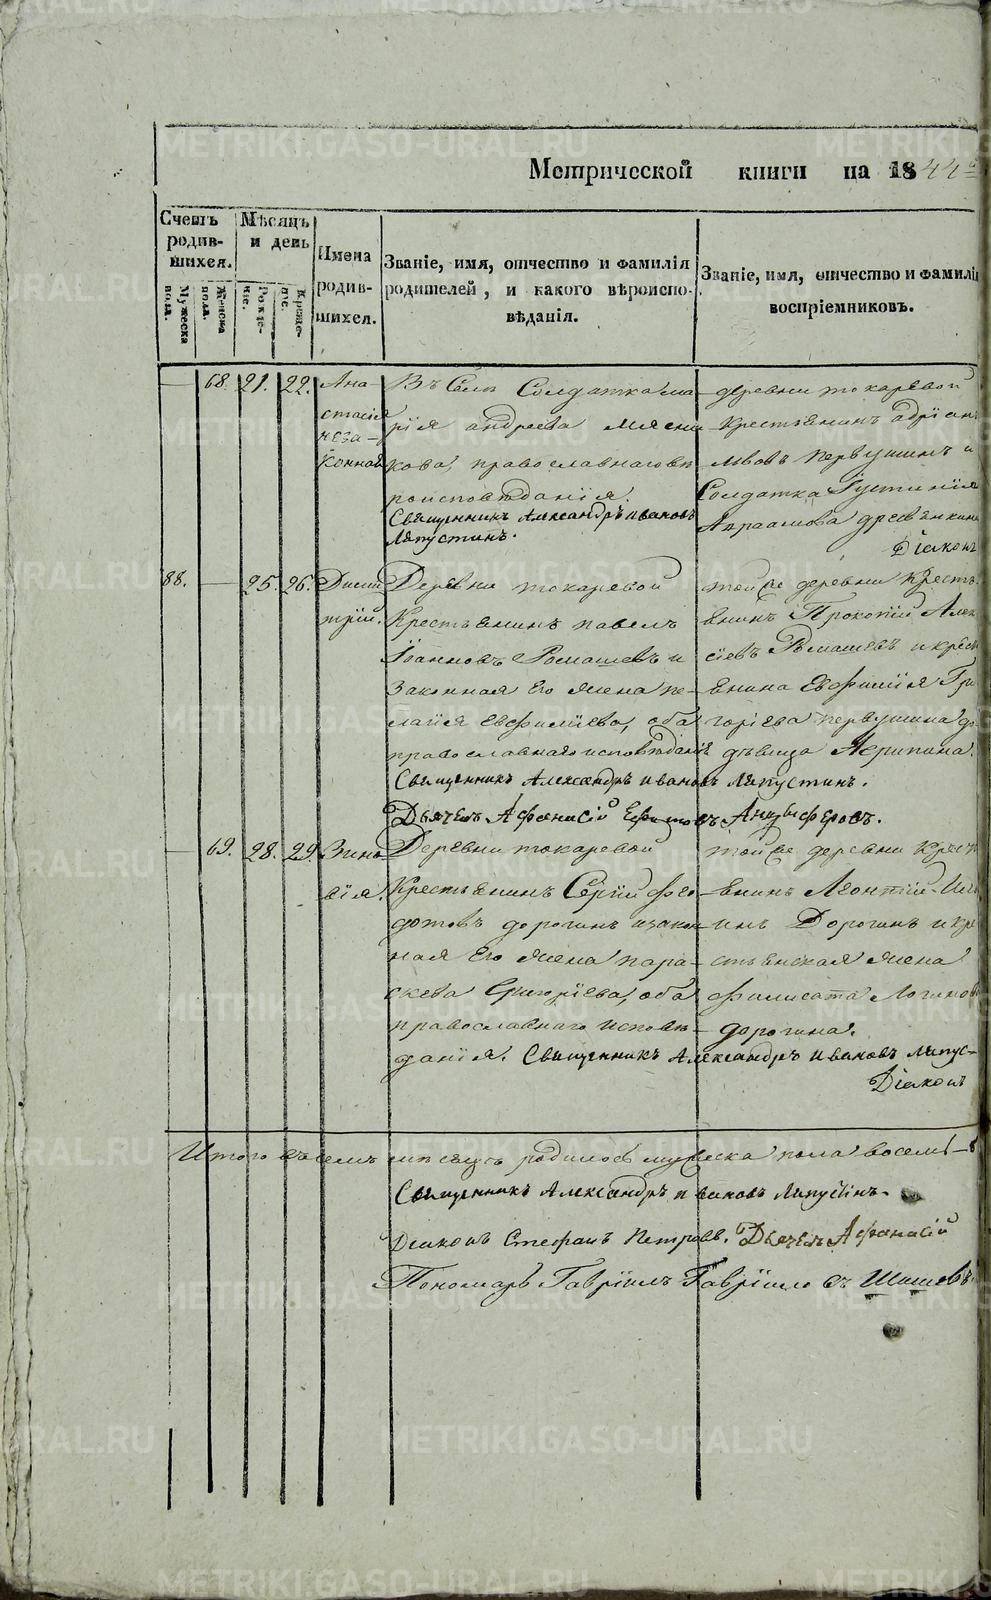 Метрической книги на 1844 г.
Счетъ родившихся.
Мужеска пола.
Женска пола.
Мѣсяцъ и день
Рожденіе.
Крещеніе.
Имена родившихся.
Званіе, имя, отчество и фамилія
родителей, и какого вѣроиспо-
вѣданія.
Званіе, имя, отчество и фамилія
воспріемниковъ.
— 68. 21. 22.
Ана
стасія
неза-
конная
Въ Селѣ Солдатка ма
рія андреева Мясни
кова, православнаго вѣ
роисповѣданія.
Священникъ Александръ ивановъ
Ляпустинъ.
деревни токаревой
Крестьянинъ адріанъ
львовъ Первушинъ и
Солдатка Іустинія
Авраамова
Діаконъ
88. — 25. 26.
Дими
трій.
Деревни токаревой
Крестьянинъ павелъ
Іоанновъ Ромашевъ и
Законная Его жена пе-
лагія Евфиміева, оба
православнаго исповѣданія
той же деревни Кресть
янинъ Прокопій Алек
сіевъ Ромашевъ и крест
янина Евфимія Гри
горіева первушина до
дѣвица Агрипина.
Священникъ Александръ ивановъ Ляпустинъ.
Дьячекъ Афанасій Анцыферовъ.
— 69. 28. 29.
Зино
вія.
Деревни токаревой
Крестьянинъ Сергій фео
дотовъ дорогинъ и закон
ная Его жена пара-
скева Григоріева, оба
православнаго исповѣ-
данія. Священникъ Александръ ивановъ Ляпус-
той же деревни Крест
янинъ Леонтій
инъ Дорогинъ и кре
стьянская жена
филисата Логинов
дорогина.
Діаконъ
Итого въ семъ мѣсяцѣ родилось мужеска пола восемь — 8
Священникъ Александръ ивановъ Ляпустинъ.
Діаконъ Стефанъ Петровъ. Дьячекъ Афанасій
Пономарь Гавріилъ Гавріиловъ Шишовъ
METRIKI.GASO-URAL.RU